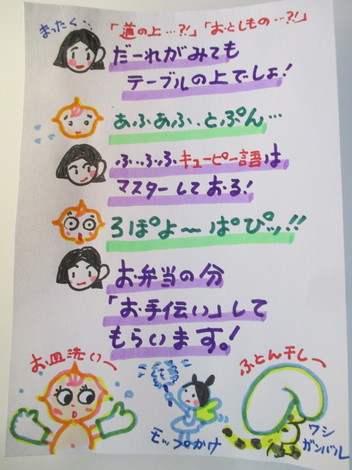 まったく…
「道の上…?!」「おとしもの…?!」
だーれがみても
テーブルの上でしょ!
あふあふ、とぷん…
ふ…ふっふ キューピー語は
マスターしておる!
ろぽよ〜ぱぴッ!!
お弁当の分
「お手伝い」して
もらいます。!
お皿洗い〜
モップかけ
ふとん干し〜
ワシ
ガンバル